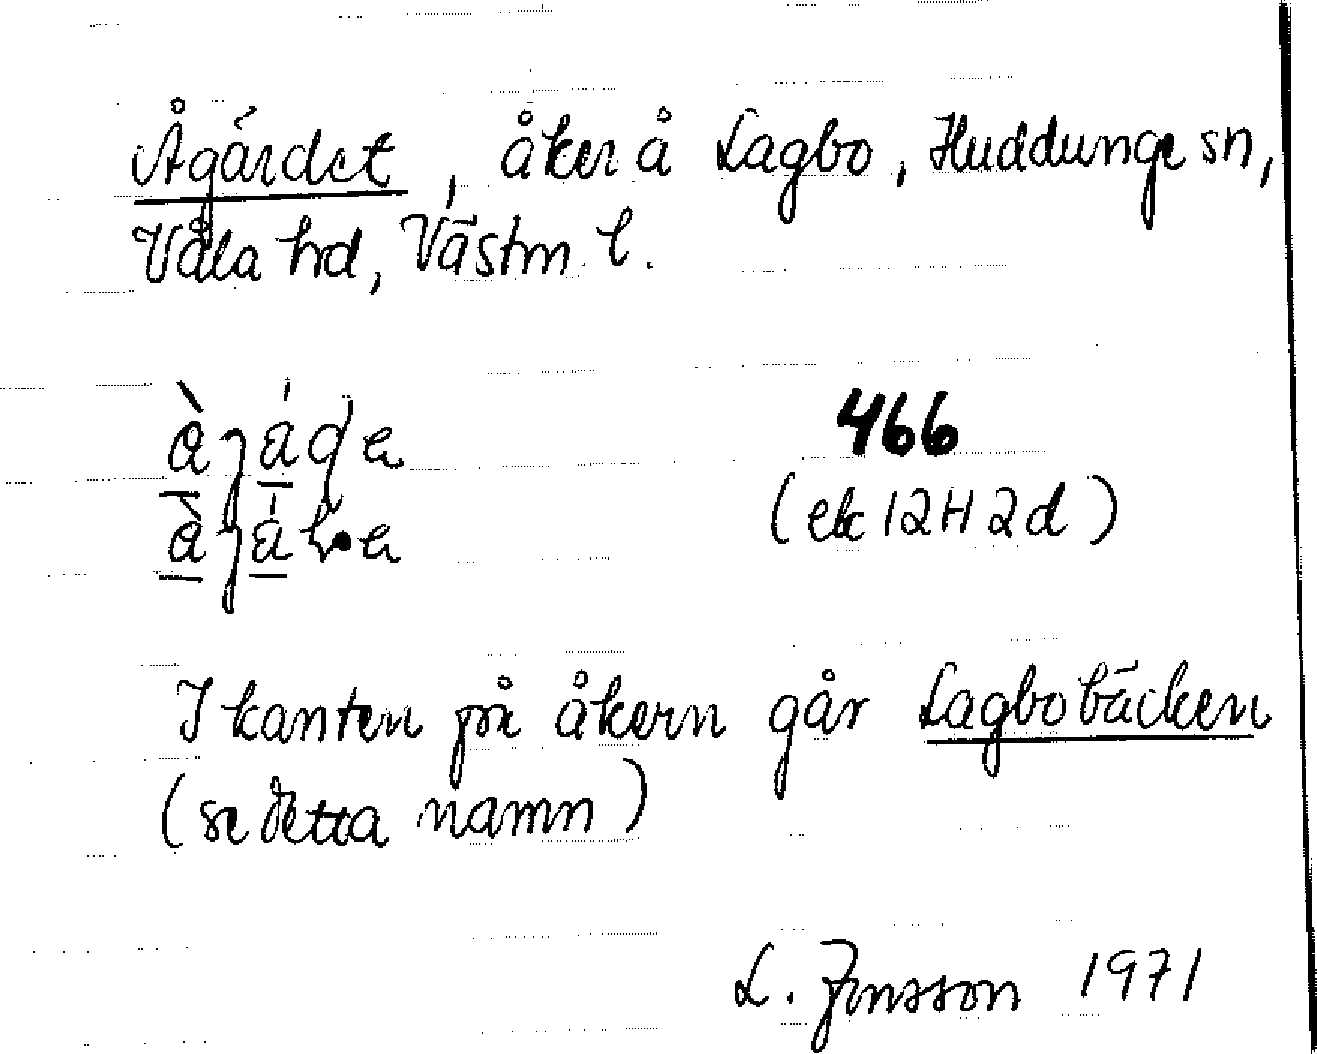 Ågärdet, åker å Lagbo, Huddunge sn,
Våla hd, Västm. l.
466
(ek 12H 2d)
I kanten på åkern går Lagbobäcken
(se detta namn)
L. Jonsson 1971